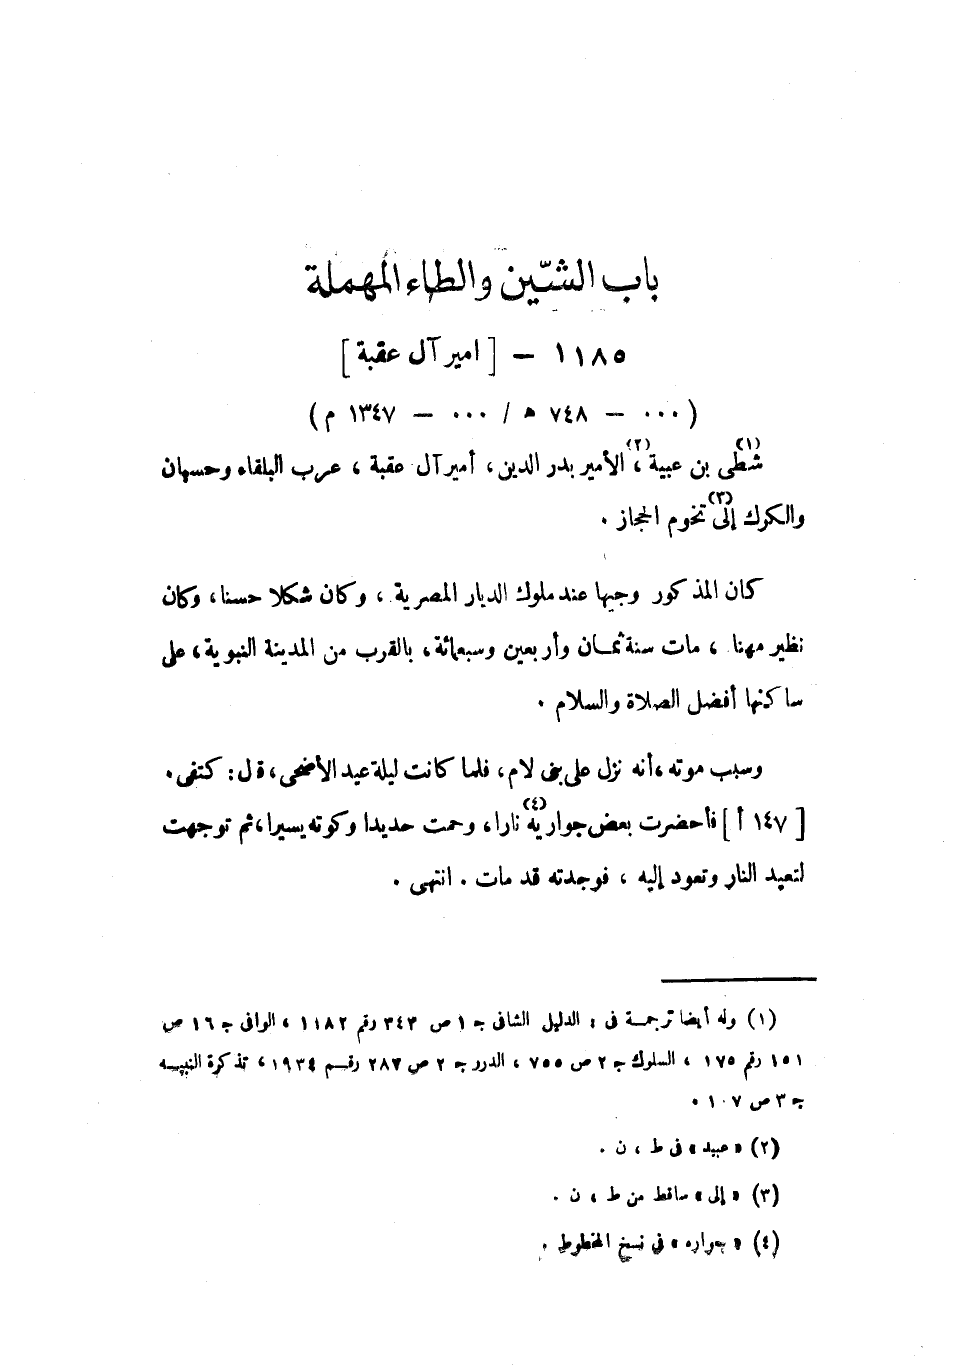 باب الشّين والطاء المهملة
١١٨٥ – [ امير آل عقبة ]
( ٠٠٠ – ٧٤٨ ه / ٠٠٠ – ١٣٤٧ م )
شطى(١) بن عبية(٢) ، الأمير بدر الدين ، أمير آل عقبة ، عرب البلقاء وحسبان
والكرك إلى(٣) تخوم الحجاز .
كان المذكور وجيها عند ملوك الديار المصرية ، وكان شكلا حسنا ، وكان
نظير مهنا ، مات سنة ثمان وأربعين وسبعمائة ، بالقرب من المدينة النبوية ، على
ساكنها أفضل الصلاة والسلام .
وسبب موته ، أنه نزل على بنى لام ، فلما كانت ليلة عيد الأضحى ، قال : كتفى .
[ ١٤٧ أ ] فأحضرت بعض جواريه(٤) نارا ، وحمت حديدا وكوته يسيرا ، ثم توجهت
لتعيد النار وتعود إليه ، فوجدته قد مات . انتهى .
(١) وله أيضا ترجمة فى : الدليل الشافى ج ١ ص ٣٤٣ رقم ١١٨٢ ، الوافى ج ١٦ ص
١٥١ رقم ١٧٥ ، السلوك ج ٢ ص ٧٥٥ ، الدرر ج ٢ ص ٢٨٧ رقم ١٩٣٤ ، تذكرة النبيه
ج ٣ ص ١٠٧ .
(٢) « عبيد » فى ط ، ن .
(٣) « إلى » ساقط من ط ، ن .
(٤) « جواره » فى نسخ المخطوط .